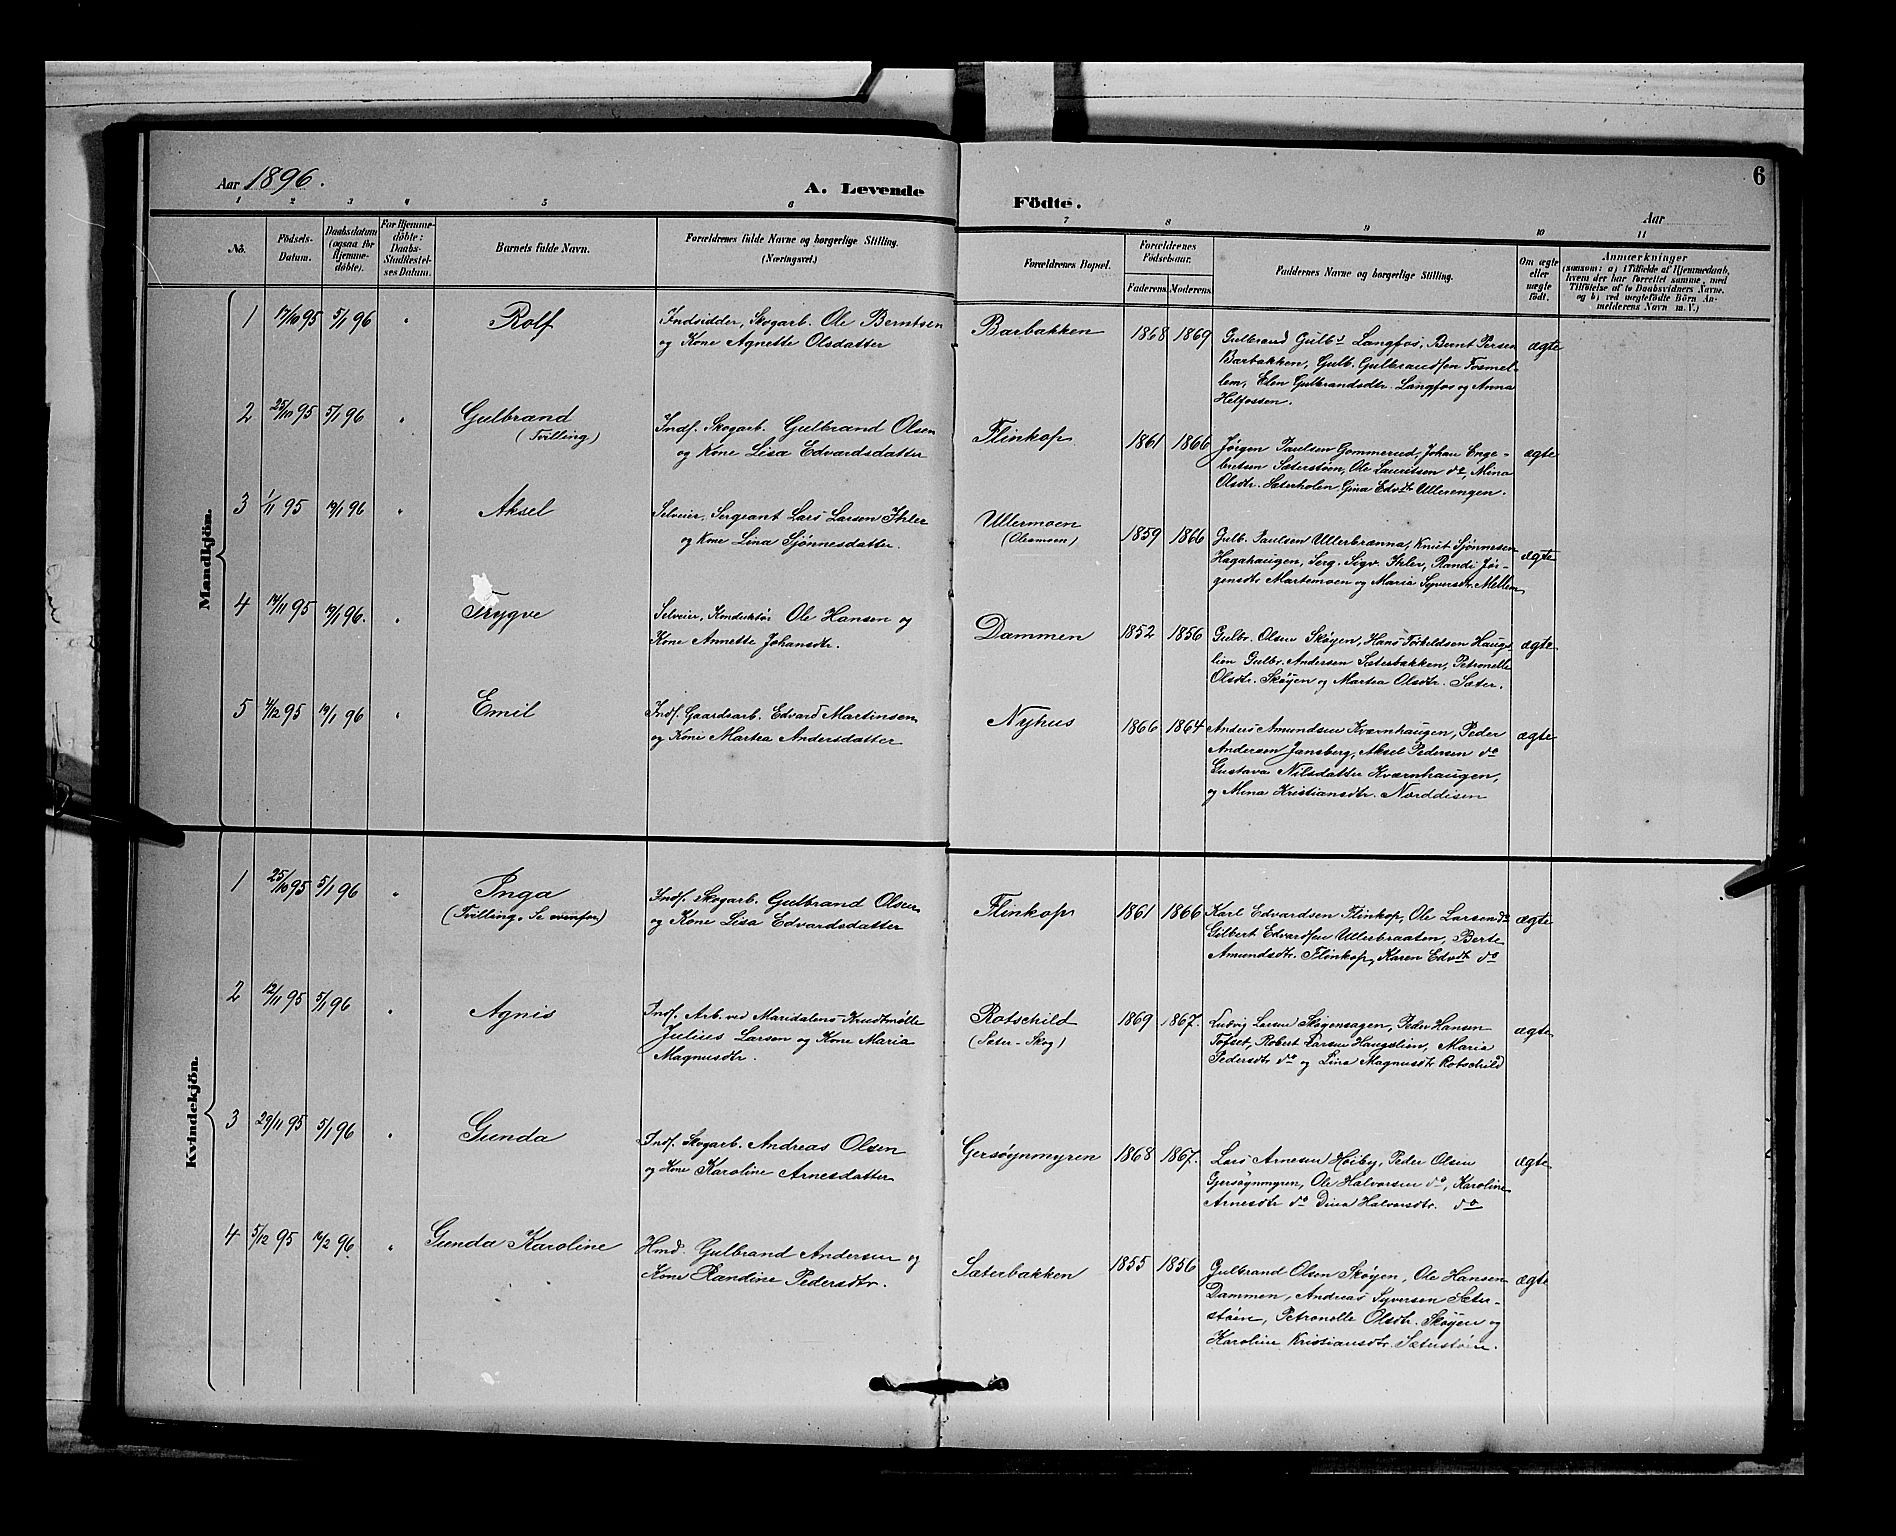 Aar 1896.
A. Levende
Födte.
6
Aar
1 2 3 4 5 6
7 8 9 10 11
No.
Födsels-
Datum.
Daabsdatum
(ogsaa for
Hjemme-
døbte).
For Hjemme-
døbte:
Daabs-
Stadfæstel-
ses Datum.
Barnets fulde Navn.
Forældrenes fulde Navne og borgerlige Stilling.
(Næringsvei.)
Forældrenes Bopæl.
Forældrenes
Födselsaar.
Faderens. Moderens.
Faddernes Navne og borgerlige Stilling.
Om ægte
eller
uægte
födt.
Anmærkninger
(saasom: a) i Tilfælde af Hjemmedaab,
hvem der har forrettet samme, med
Tilföielse af to Daabsvidners Navne,
og b) ved uægtefödte Börn An-
melderens Navn m. V.)
Mandkjön.
1 17/10 95 5/1 96 " Rolf
Indsidder, Skogarb. Ole Berntsen
og Kone Agnette Olsdatter
Barbakken 1868 1869
Gulbrand Gulbs Langfos, Bernt Persen
Barbakken, Gulb. Gulbrandsen Fosmel-
lem, Elen Gulbrandsdtr. Langfos og Anna
Helfossen.
ægte
2 25/10 95 5/1 96 " Gulbrand
(Tvilling)
Inds. Skogarb. Gulbrand Olsen
og Kone Lisa Edvardsdatter
Flinkop. 1861 1866
Jørgen Paulsen Gommerud, Johan Enge-
bretsen Sæterstøen, Ole Lauritsen do, Mina
Olsdtr. Sæterholen, Gina Edvdtr Ullerengen.
ægte
3 1/11 95 19/1 96 " Aksel
Selveier, Sergeant Lars Larsen Ihler
og Kone Lina Sjønnesdatter.
Ullermoen
(Olesmoen)
1859 1866
Gulb. Paulsen Ullerbrænna, Knut Sjønnesen
Hagahaugen, Serg. Sigv. Ihler, Randi Jør-
gensdtr Martemoen og Maria Syversdtr. Mellem
ægte
4 14/11 95 19/1 96. " Trygve
Selveier, Konduktør Ole Hansen og
Kone Annette Johansdtr.
Dammen 1852 1856
Gulbr. Olsen Skøyen, Hans Torkildsen Haugs-
lien Gulbr. Andersen Sæterbakken, Petronelle
Olsdtr. Skøyen og Martea Olsdtr. Sæter.
ægte
5 4/12 95 19/1 96 " Emil
Inds. Gaardsarb. Edvard Martinsen
og Kone Martea Andersdatter
Nyhus 1866 1864
Anders Amundsen Kværnhaugen, Peder
Andersen Jansberg, Aksel Pedersen do
Gustava Nilsdatter Kværnhaugen,
og Mina Kristiansdtr. Norddisen
ægte
Kvindekjön.
1 25/10 95 5/1 96 " Inga
(Tvilling. Se ovenfor)
Inds. Skogarb. Gulbrand Olsen
og Kone Lisa Edvardsdatter
Flinkop 1861 1866
Karl Edvardsen Flinkop, Ole Larsen do
Gilbert Edvardsen Ullerbraaten, Berte
Amundsdtr. Flinkop, Karen Edvdt do
ægte
2 12/11 95 5/1 96 " Agnis
Inds. Arb. ved Maridalens Krudtmølle
Julius Larsen og Kone Maria
Magnusdtr.
Rotschild
(Sæter-Skog)
1869 1867.
Ludvig Larsen Skøgensagen, Peder Hansen
Tofset, Robert Larsen Haugslien, Maria
Pedersdtr do og Lina Magnusdtr Rotschild
ægte
3 29/11 95 5/1 96 " Gunda
Inds. Skogarb. Andreas Olsen
og Kone Karoline Arnesdatter
Gersøynmyren 1868 1867.
Lars Arnesen Høiby, Peder Olsen
Gersøynmyren, Ole Halvorsen do, Karoline
Arnesdtr do Dina Halvorsdtr. do
ægte
4 5/12 95 16/2 96. " Gunda Karoline
Hmd. Gulbrand Andersen og
Kone Randine Pedersdtr.
Sæterbakken 1855 1856
Gulbrand Olsen Skøyen, Ole Hansen
Dammen, Andreas Syversen Sæter-
støen, Petronelle Olsdtr. Skøyen og
Karoline Kristiansdtr. Sæterstøen.
ægte